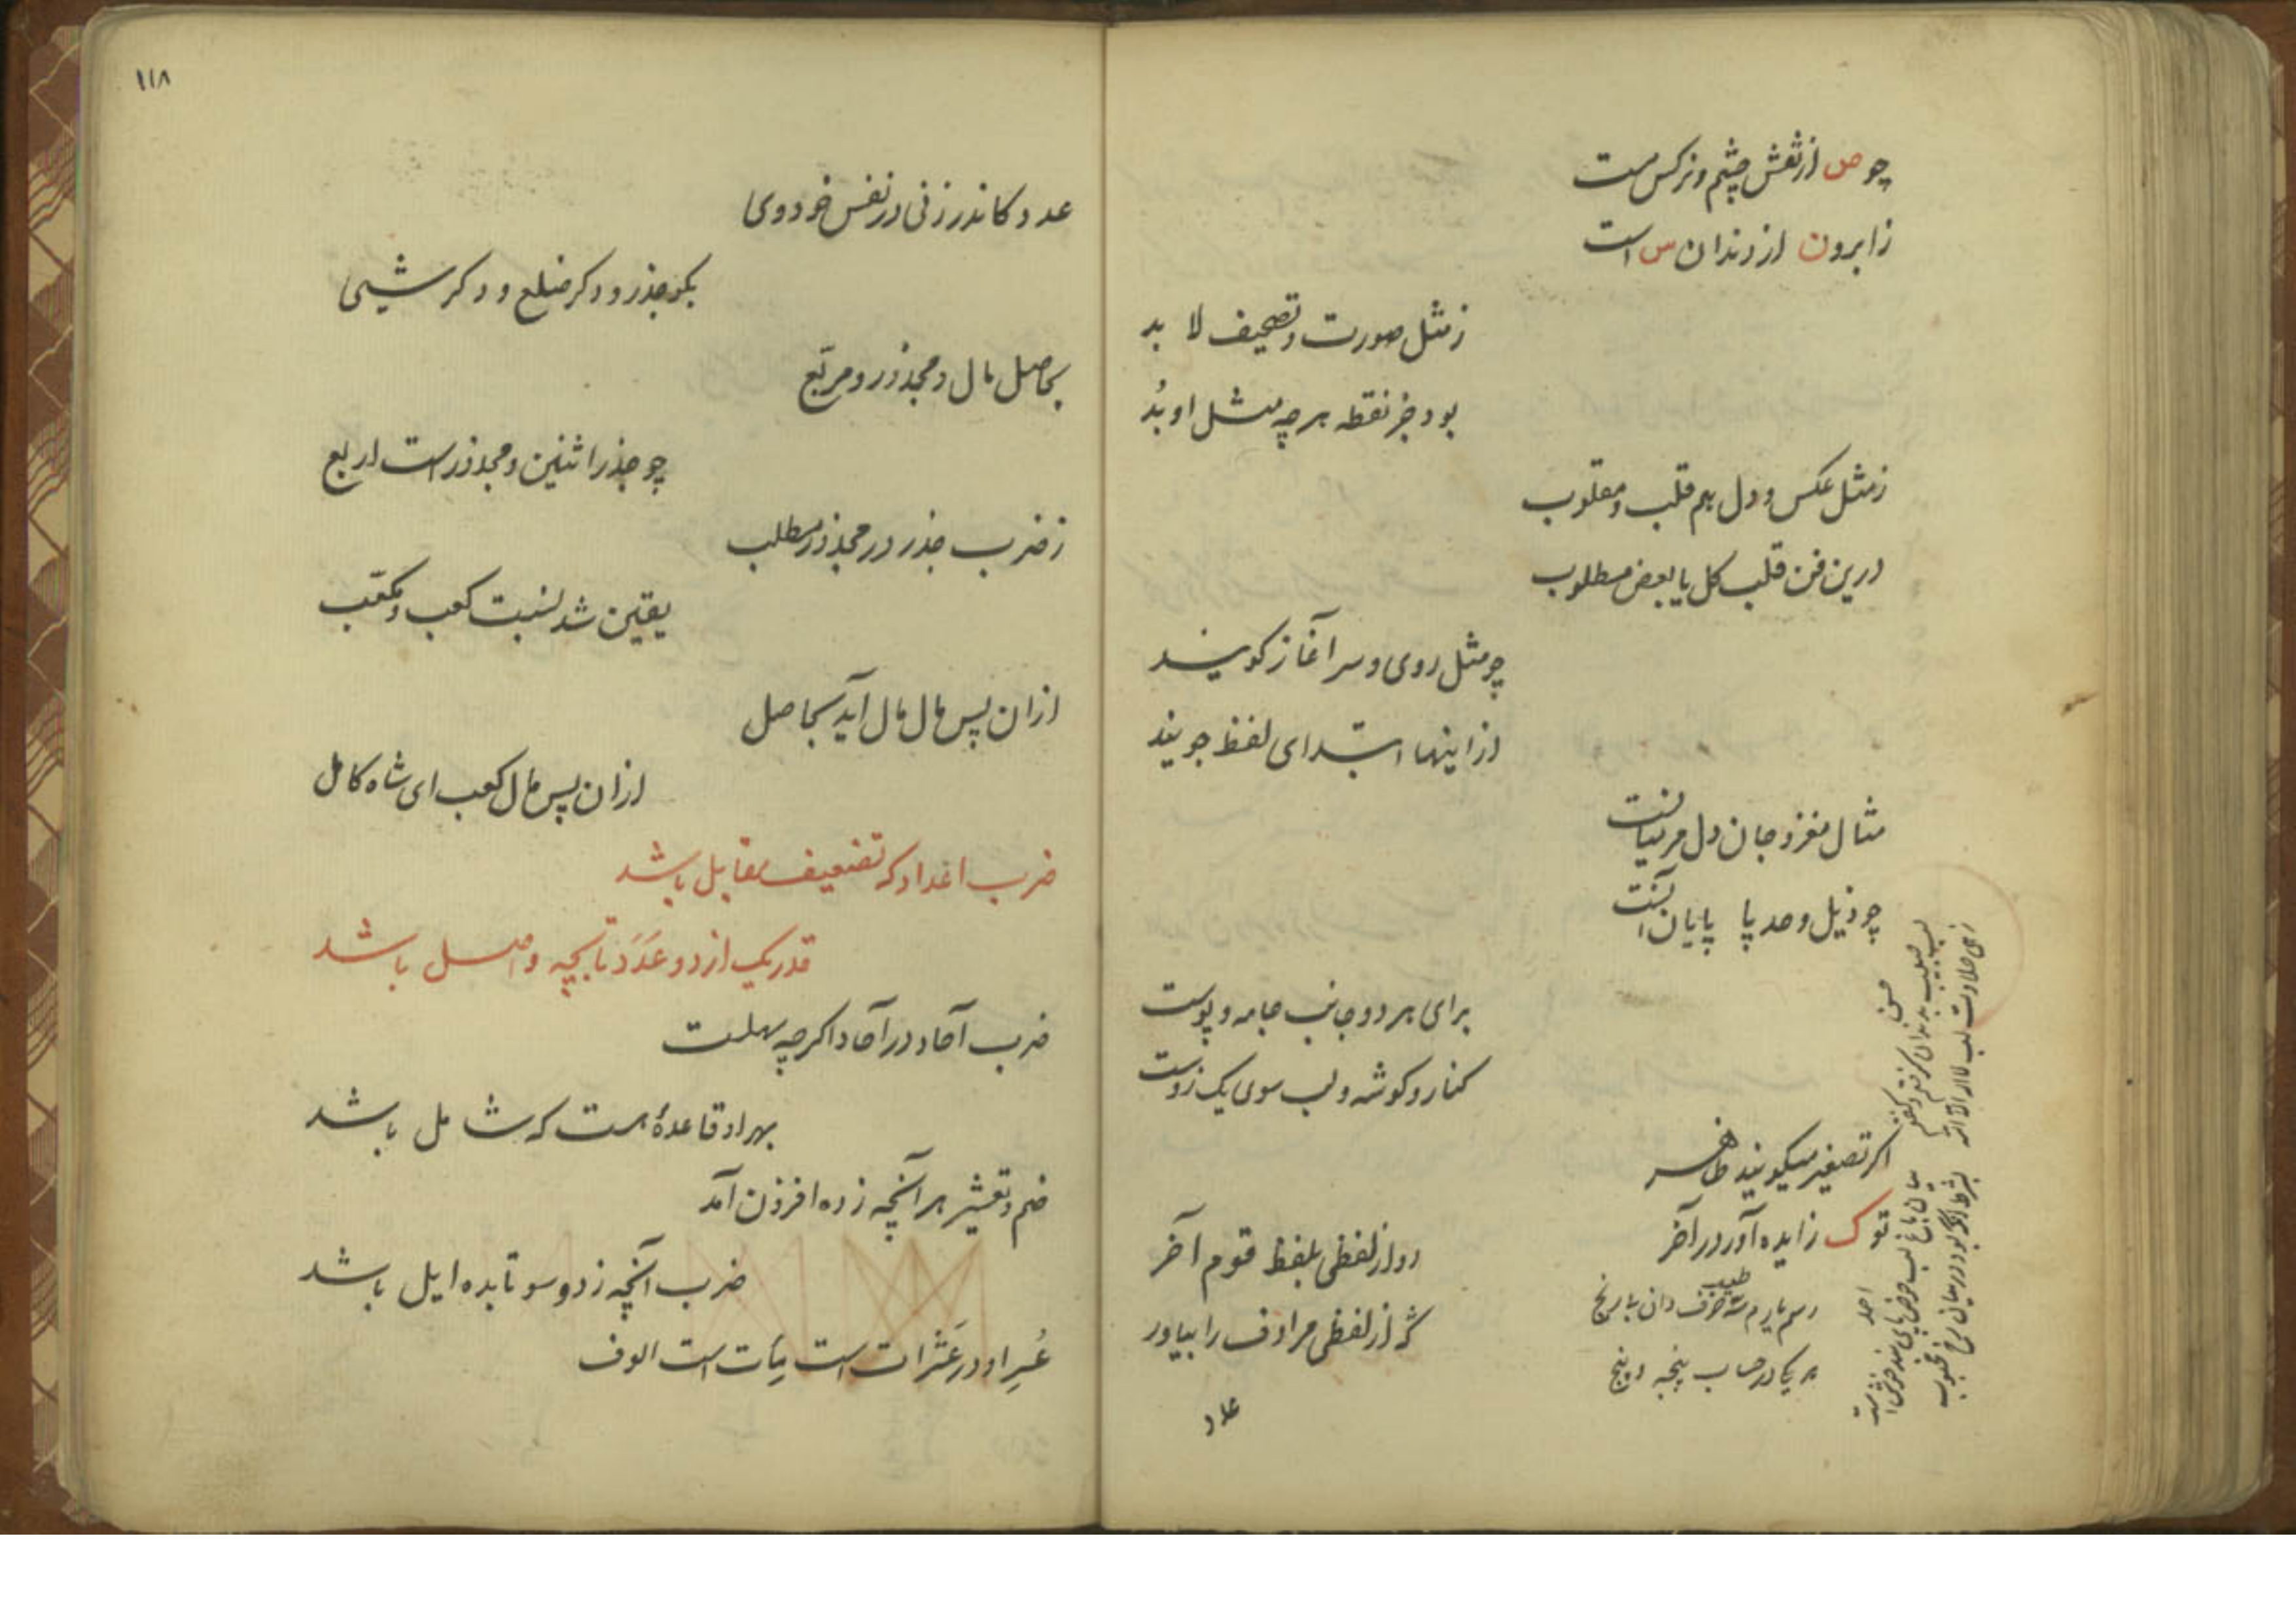 چو ص از نقش چشم و نرکس مست
ز ابرو ن از دندان س است
ز مثل صورت و تصحیف لا بد
بود جز نقطه هر چه مثل او بُد
ز مثل عکس و دل هم قلب و مقلوب
درین فن قلب کل یا بعض مطلوب
چو مثل روی و سر آغاز کویند
از اینها ابتدای لفظ جویند
مثال مغز و جان دل مر میانست
چو ذیل و حد پا پایان آنست
برای هر دو جانب جامه و پوست
کنار و کوشه و لب سوی یک زوست
اکر تصغیر میکویند ظاهر
تو ک زایده آور در آخر
دو از لفظی بلفظ قوم آخر
کر از لفظی مرادف را بیاور
عدد
۱۱۸
عدد کاندر زنی در نفس خود وی
بکو جذر و دکر ضلع و دکر شیی
بحاصل مال و مجذور و مربّع
چو جذر اثنین و مجذور است اربع
ز ضرب جذر در مجذور مطلب
یقین شد نسبت کعب و مکعّب
ازان پس مال مال آید بحاصل
ازان پس مال کعب ای شاه کامل
ضرب اعداد که تضعیف مقابل باشد
قدر یک از دو عَدَد تا بچه واصل باشد
ضرب آحاد در آحاد اکر چه سهلست
بهر او قاعدهٔ هست که شامل باشد
ضم و تعشیر هر آنچه ز ده افزون آمد
ضرب آنچه ز دو سو تا بده ایل باشد
عُسرِ او در عَشرات است مِآت است الوف